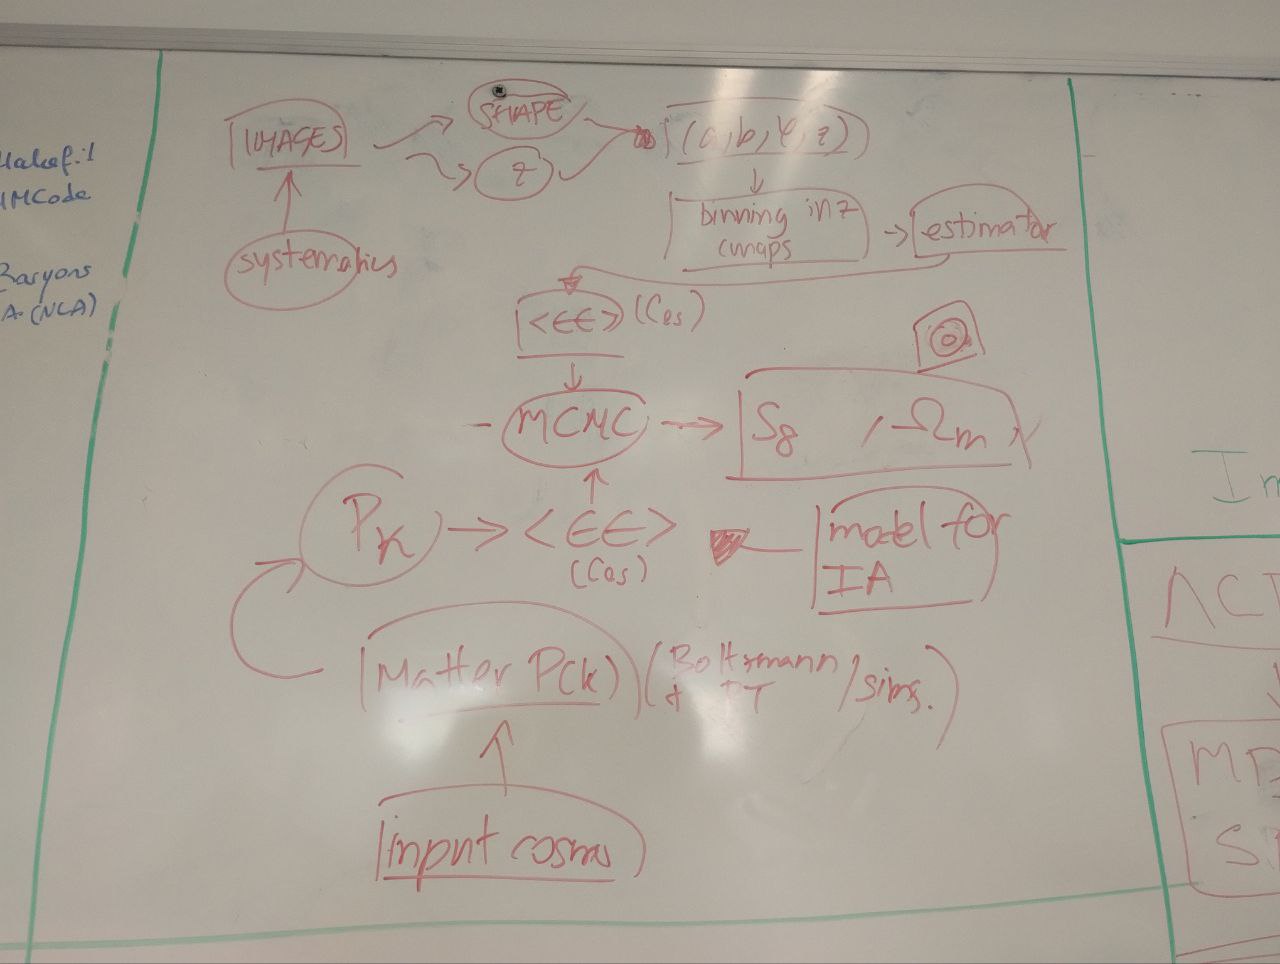 HMCode
Baryons
(NLA)
IMAGES
SHAPE
z
(a, b, φ, z)
systematics
binning in z
(maps
estimator
<ϵϵ> (Ces)
MCMC
S8 , Ωm
Pκ
<ϵϵ>
(Ces)
model for
IA
Matter P(k)
(Boltzmann
+ PT / sims.)
input cosmo
ACT